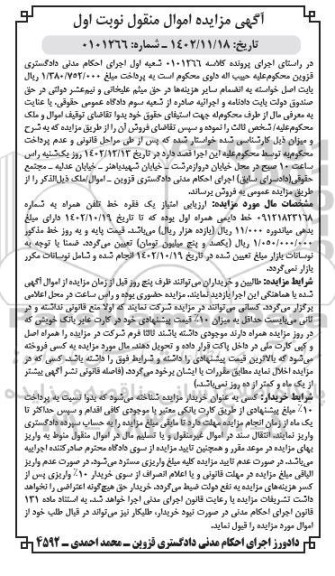 آگهی مزایده اموال منقول نوبت اول
تاریخ: ۱۴۰۲/۱۱/۱۸ ــ شماره: ۰۱۰۱۲۶۶
در راستای اجرای پرونده کلاسه ۰۱۰۱۲۶۶ شعبه اول اجرای احکام مدنی دادگستری
قزوین محکوم‌علیه حبیب اله داوی محکوم است به پرداخت مبلغ ۱/۳۸۰/۷۵۲/۰۰۰ ریال
بابت اصل خواسته به انضمام سایر هزینه‌ها در حق میثم علیخانی و نیم‌عشر دولتی در حق
صندوق دولت بابت دادنامه و اجرائیه صادره از شعبه سوم دادگاه عمومی حقوقی، با عنایت
به معرفی مال از طرف محکوم‌له جهت استیفای حقوق خود بدوا تقاضای توقیف اموال و ملک
محکوم‌علیه/ شخص ثالث را نموده و سپس تقاضای فروش آن را از طریق مزایده که به شرح
و میزان ذیل کارشناسی شده خواستار شده که پس از طی مراحل قانونی و عدم پرداخت
محکوم‌به توسط محکوم‌علیه این اجرا قصد دارد در تاریخ ۱۴۰۲/۱۲/۱۳ روز یکشنبه راس
ساعت ۱۰ صبح در محل خیابان دروازه‌رشت ـ خیابان شهیدباهنر ـ خیابان عدلیه ـ مجتمع
حقوقی(دادسرای سابق) اجرای احکام مدنی دادگستری قزوین ـ اموال/ملک ذیل‌الذکر را از
طریق مزایده عمومی به فروش برساند.
مشخصات مال مورد مزایده: ارزیابی امتیاز یک فقره خط تلفن همراه به شماره
۰۹۱۲۱۸۲۳۱۶۸ خط دایمی همراه اول بوده که تا تاریخ ۱۴۰۲/۱۰/۱۹ دارای مبلغ
بدهی میاندوره ۱۱/۰۰۰ ریال (یازده هزار ریال) می‌باشد، قیمت پایه و به روز خط مذکور
۱/۰۵۰/۰۰۰/۰۰۰ ریال (یکصد و پنج میلیون تومان) تعیین می‌گردد. ضمنا با توجه به
نوسانات بازار مبلغ تعیین شده در تاریخ ۱۴۰۲/۱۰/۱۹ انجام شده و شامل نوسانات مکرر
بازار نمی‌گردد.
شرایط مزایده: طالبین و خریداران می‌توانند ظرف پنج روز قبل از زمان مزایده از اموال آگهی
شده با هماهنگی این اجرا بازدید نمایند، مزایده حضوری بوده و راس ساعت در محل اعلامی
برگزار می‌گردد. کسانی می‌توانند در مزایده شرکت نمایند که اولا منع قانونی نداشته و در
ثانی می‌بایست حداقل به میزان ۱۰٪ قیمت پیشنهادی خود در کارت عابر بانک خویش که
در روز مزایده همراه دارند موجودی داشته باشند ثالثا فرم شرکت در مزایده را همراه اصل
و کپی کارت ملی در داخل پاکت قرار داده و تحویل دهند، مال مورد مزایده به کسی فروخته
می‌شود که بالاترین قیمت پیشنهادی را داشته و شرایط فوق را داشته باشد، کسی که در
مزایده اخلال نماید مطابق مقررات با ایشان برخورد می‌گردد. (فاصله قانونی نشر آگهی بیشتر
از یک ماه و کمتر از ده روز نمی‌باشد)
شرایط خریدار: کسی به عنوان خریدار مزایده شناخته می‌شود که بدوا نسبت به پرداخت
۱۰٪ مبلغ پیشنهادی از طریق کارت بانکی معتبر با موجودی کافی اقدام و سپس حداکثر تا
یک ماه از زمان انجام مزایده مهلت دارد تا مابقی مبلغ مزایده را به حساب سپرده دادگستری
واریز نماید، انتقال سند در اموال غیرمنقول و یا تسلیم مال در اموال منقول منوط به واریز
بهای مزایده در موعد مقرر و همچنین تایید مزایده از سوی دادگاه محترم صادرکننده اجراییه
می‌باشد، در صورت عدم تایید مزایده کلیه مبلغ واریزی مسترد می‌شود. در صورت عدم واریز
الباقی مبلغ مزایده در مهلت قانونی و یا اعلام انصراف از سوی خریدار ۱۰٪ واریزی پس از
کسر هزینه‌های مزایده به نفع دولت ضبط می‌گردد، خریدار حق هیچ‌گونه اعتراضی را نخواهد
داشت تشریفات مزایده با رعایت قانون اجرای مدنی اجرا خواهد شد، به استناد ماده ۱۳۱
قانون اجرای احکام مدنی در صورت نبود خریدار، طلبکار نیز می‌تواند در قبال طلب خود از
اموال مورد مزایده را قبول نماید.
دادورز اجرای احکام مدنی دادگستری قزوین ــ محمد احمدی ــ ۴۵۹۲